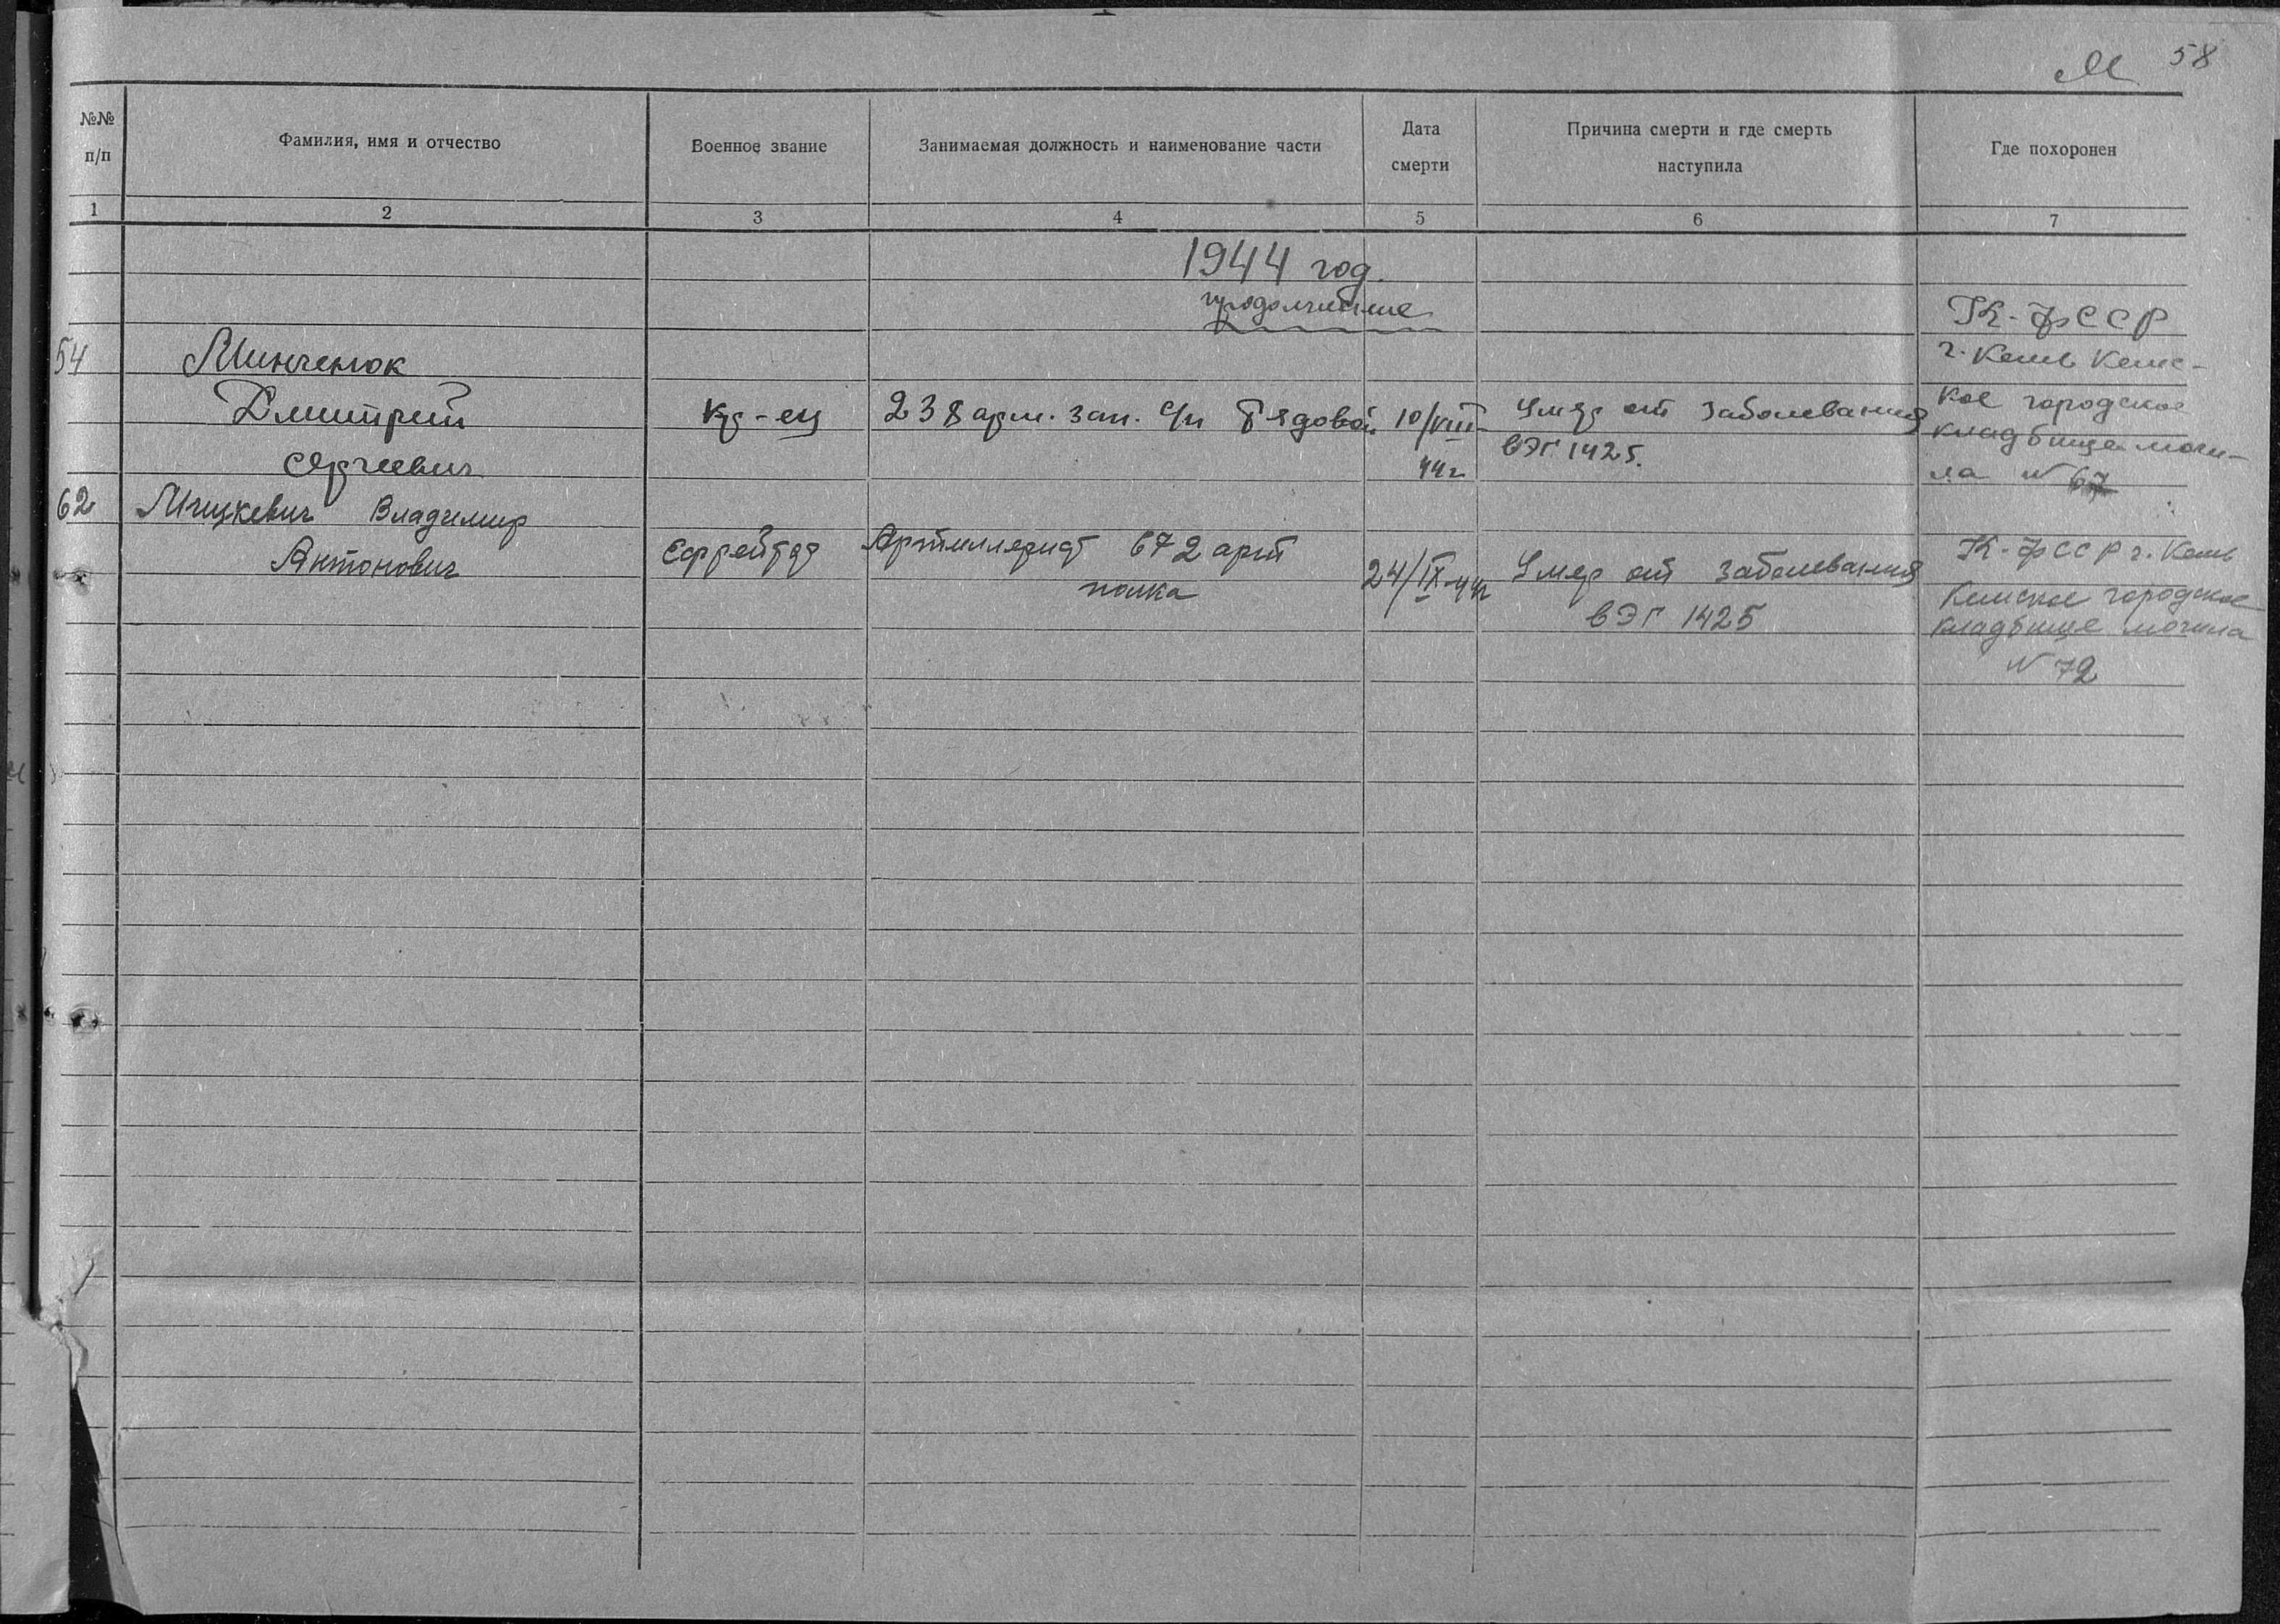 М 58
№№ п/п
Фамилия, имя и отчество
Военное звание
Занимаемая должность и наименование части
Дата смерти
Причина смерти и где смерть наступила
Где похоронен
1 2 3 4 5 6 7
1944 год.
продолжение
54
Минченюк
Дмитрий
Сергеевич
Кр-ец
238 арм. зап. с/п Рядовой
10/VIII-
44г
Умер от заболевания
в ЭГ 1425.
К-ФССР
г. Кемь Кемс-
кое городское
кладбище моги-
ла N 67
62
Мицкевич Владимир
Антонович
Ефрейтор
Артиллерист 672 арт
полка
24/IX-44г
Умер от заболевания
в ЭГ 1425
К-ФССР г. Кемь
Кемское городское
кладбище могила
N 72